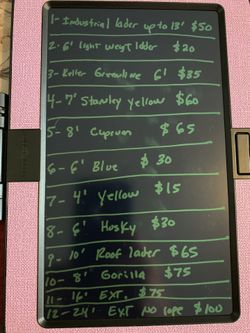 1- Industrial lader up to 13' $50
2- 6' light weigt ladder $20
3- Keller Greenline 6' $35
4- 7' Stanley yellow $60
5- 8' Cuprum $65
6- 6' Blue $30
7- 4' Yellow $15
8- 6' Husky $30
9- 10' Roof lader $65
10- 8' Gorilla $75
11- 16' EXT. $75
12- 24' EXT NO rope $100